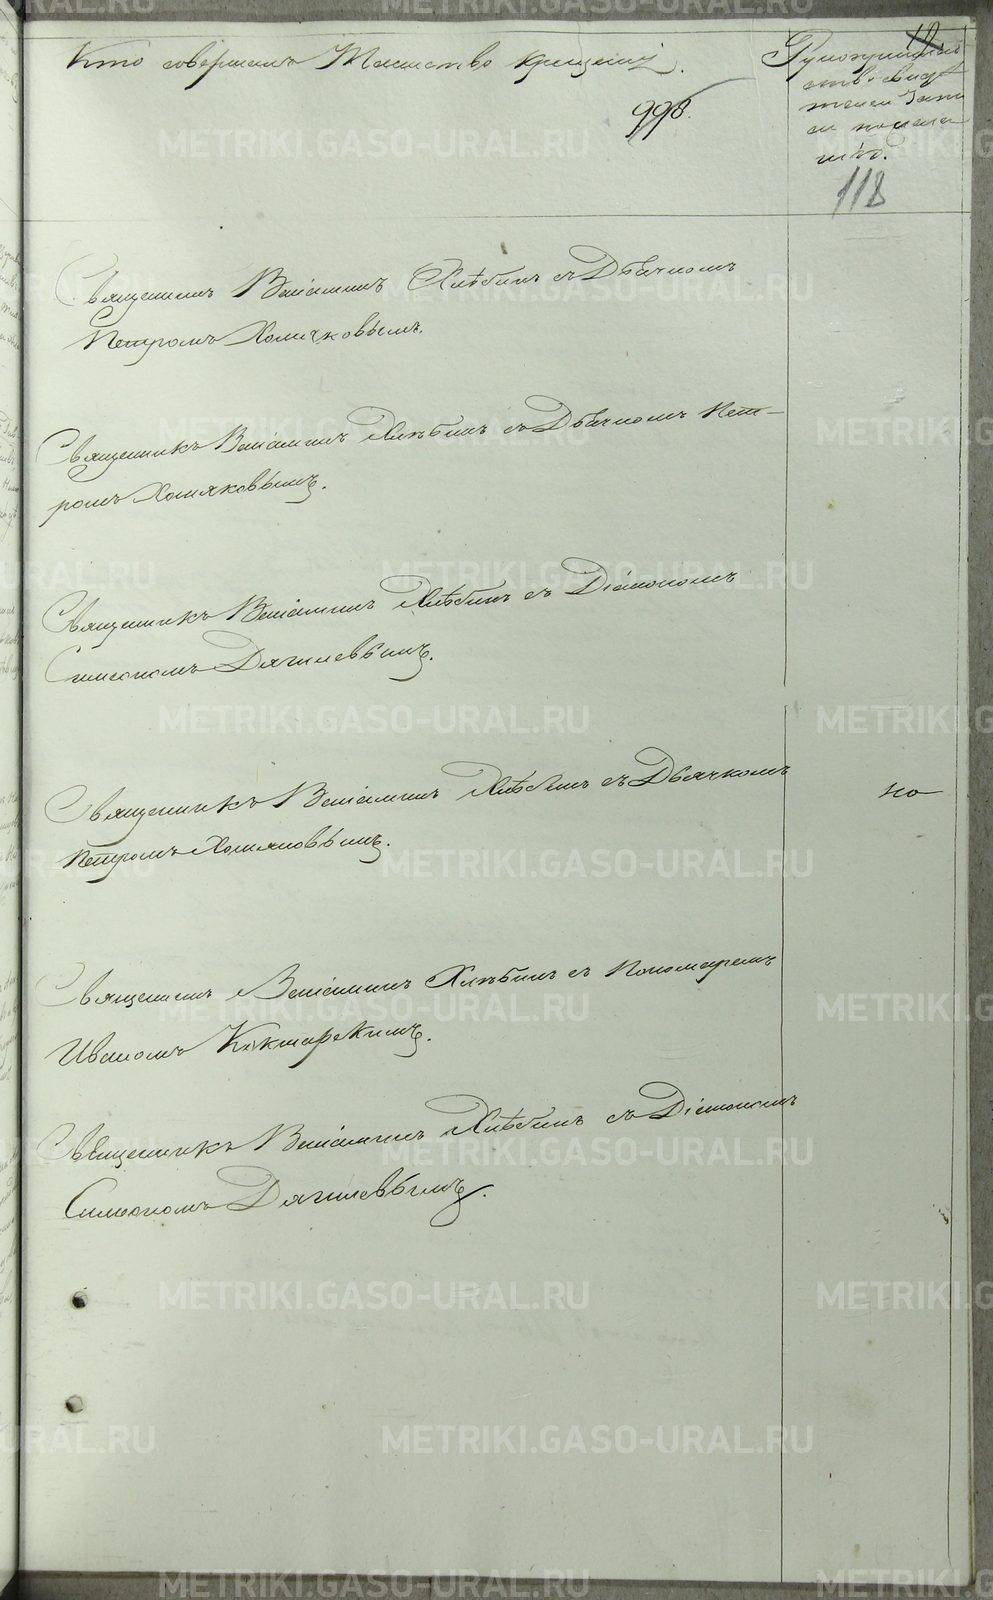 Кто совершалъ Таинство крещенія.
998.
10
Рукоприкладство свидѣтелей записи по желанію.
118
Священникъ Веніаминъ Хлѣбинъ съ Дьячкомъ
Петромъ Хомяковымъ.
Священникъ Веніаминъ Хлѣбинъ съ Дьячкомъ Пет-
ромъ Хомяковымъ.
Священникъ Веніаминъ Хлѣбинъ съ Діакономъ
Симеономъ Дягилевымъ.
Священникъ Веніаминъ Хлѣбинъ съ Дьячкомъ
Петромъ Хомяковымъ.
Священникъ Веніаминъ Хлѣбинъ съ Пономаремъ
Иваномъ Кокшарскимъ.
Священникъ Веніаминъ Хлѣбинъ съ Діакономъ
Симеономъ Дягилевымъ.
METRIKI.GASO-URAL.RU